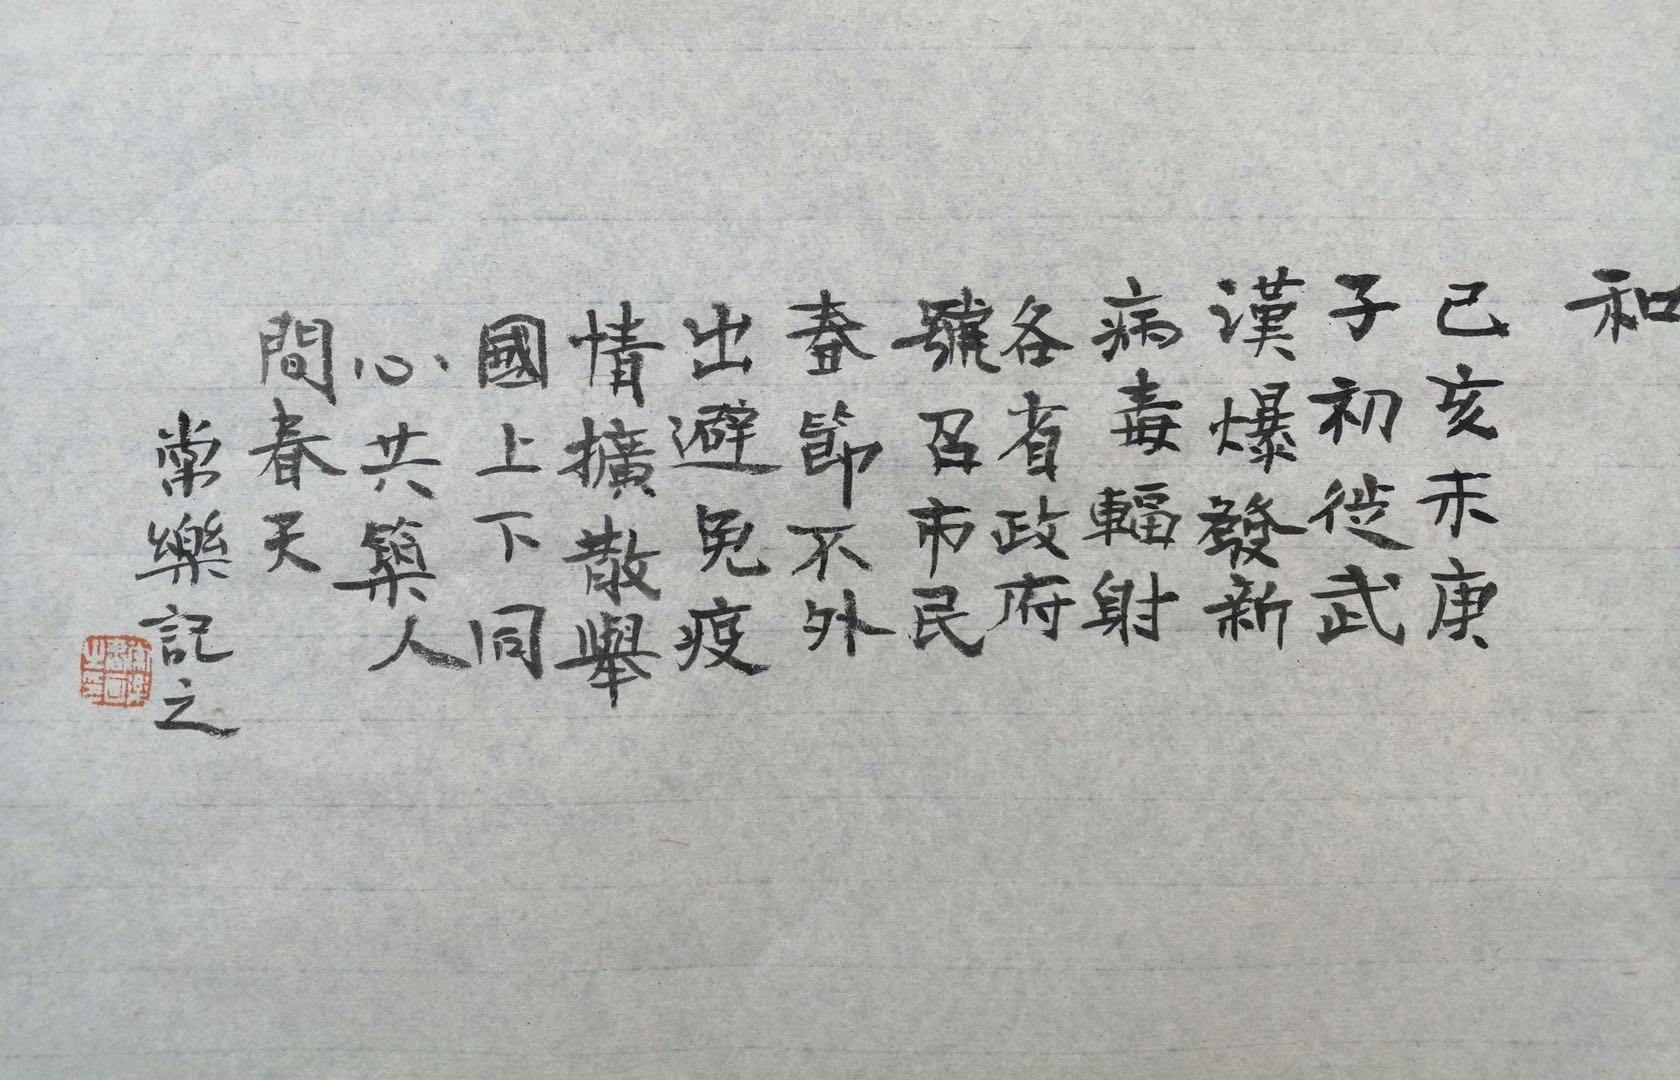 和
己亥末庚
子初從武
漢爆發新
病毒輻射
各省政府
號召市民
春節不外
出避免疫
情擴散舉
國上下同
心共築人
間春天
常樂記之